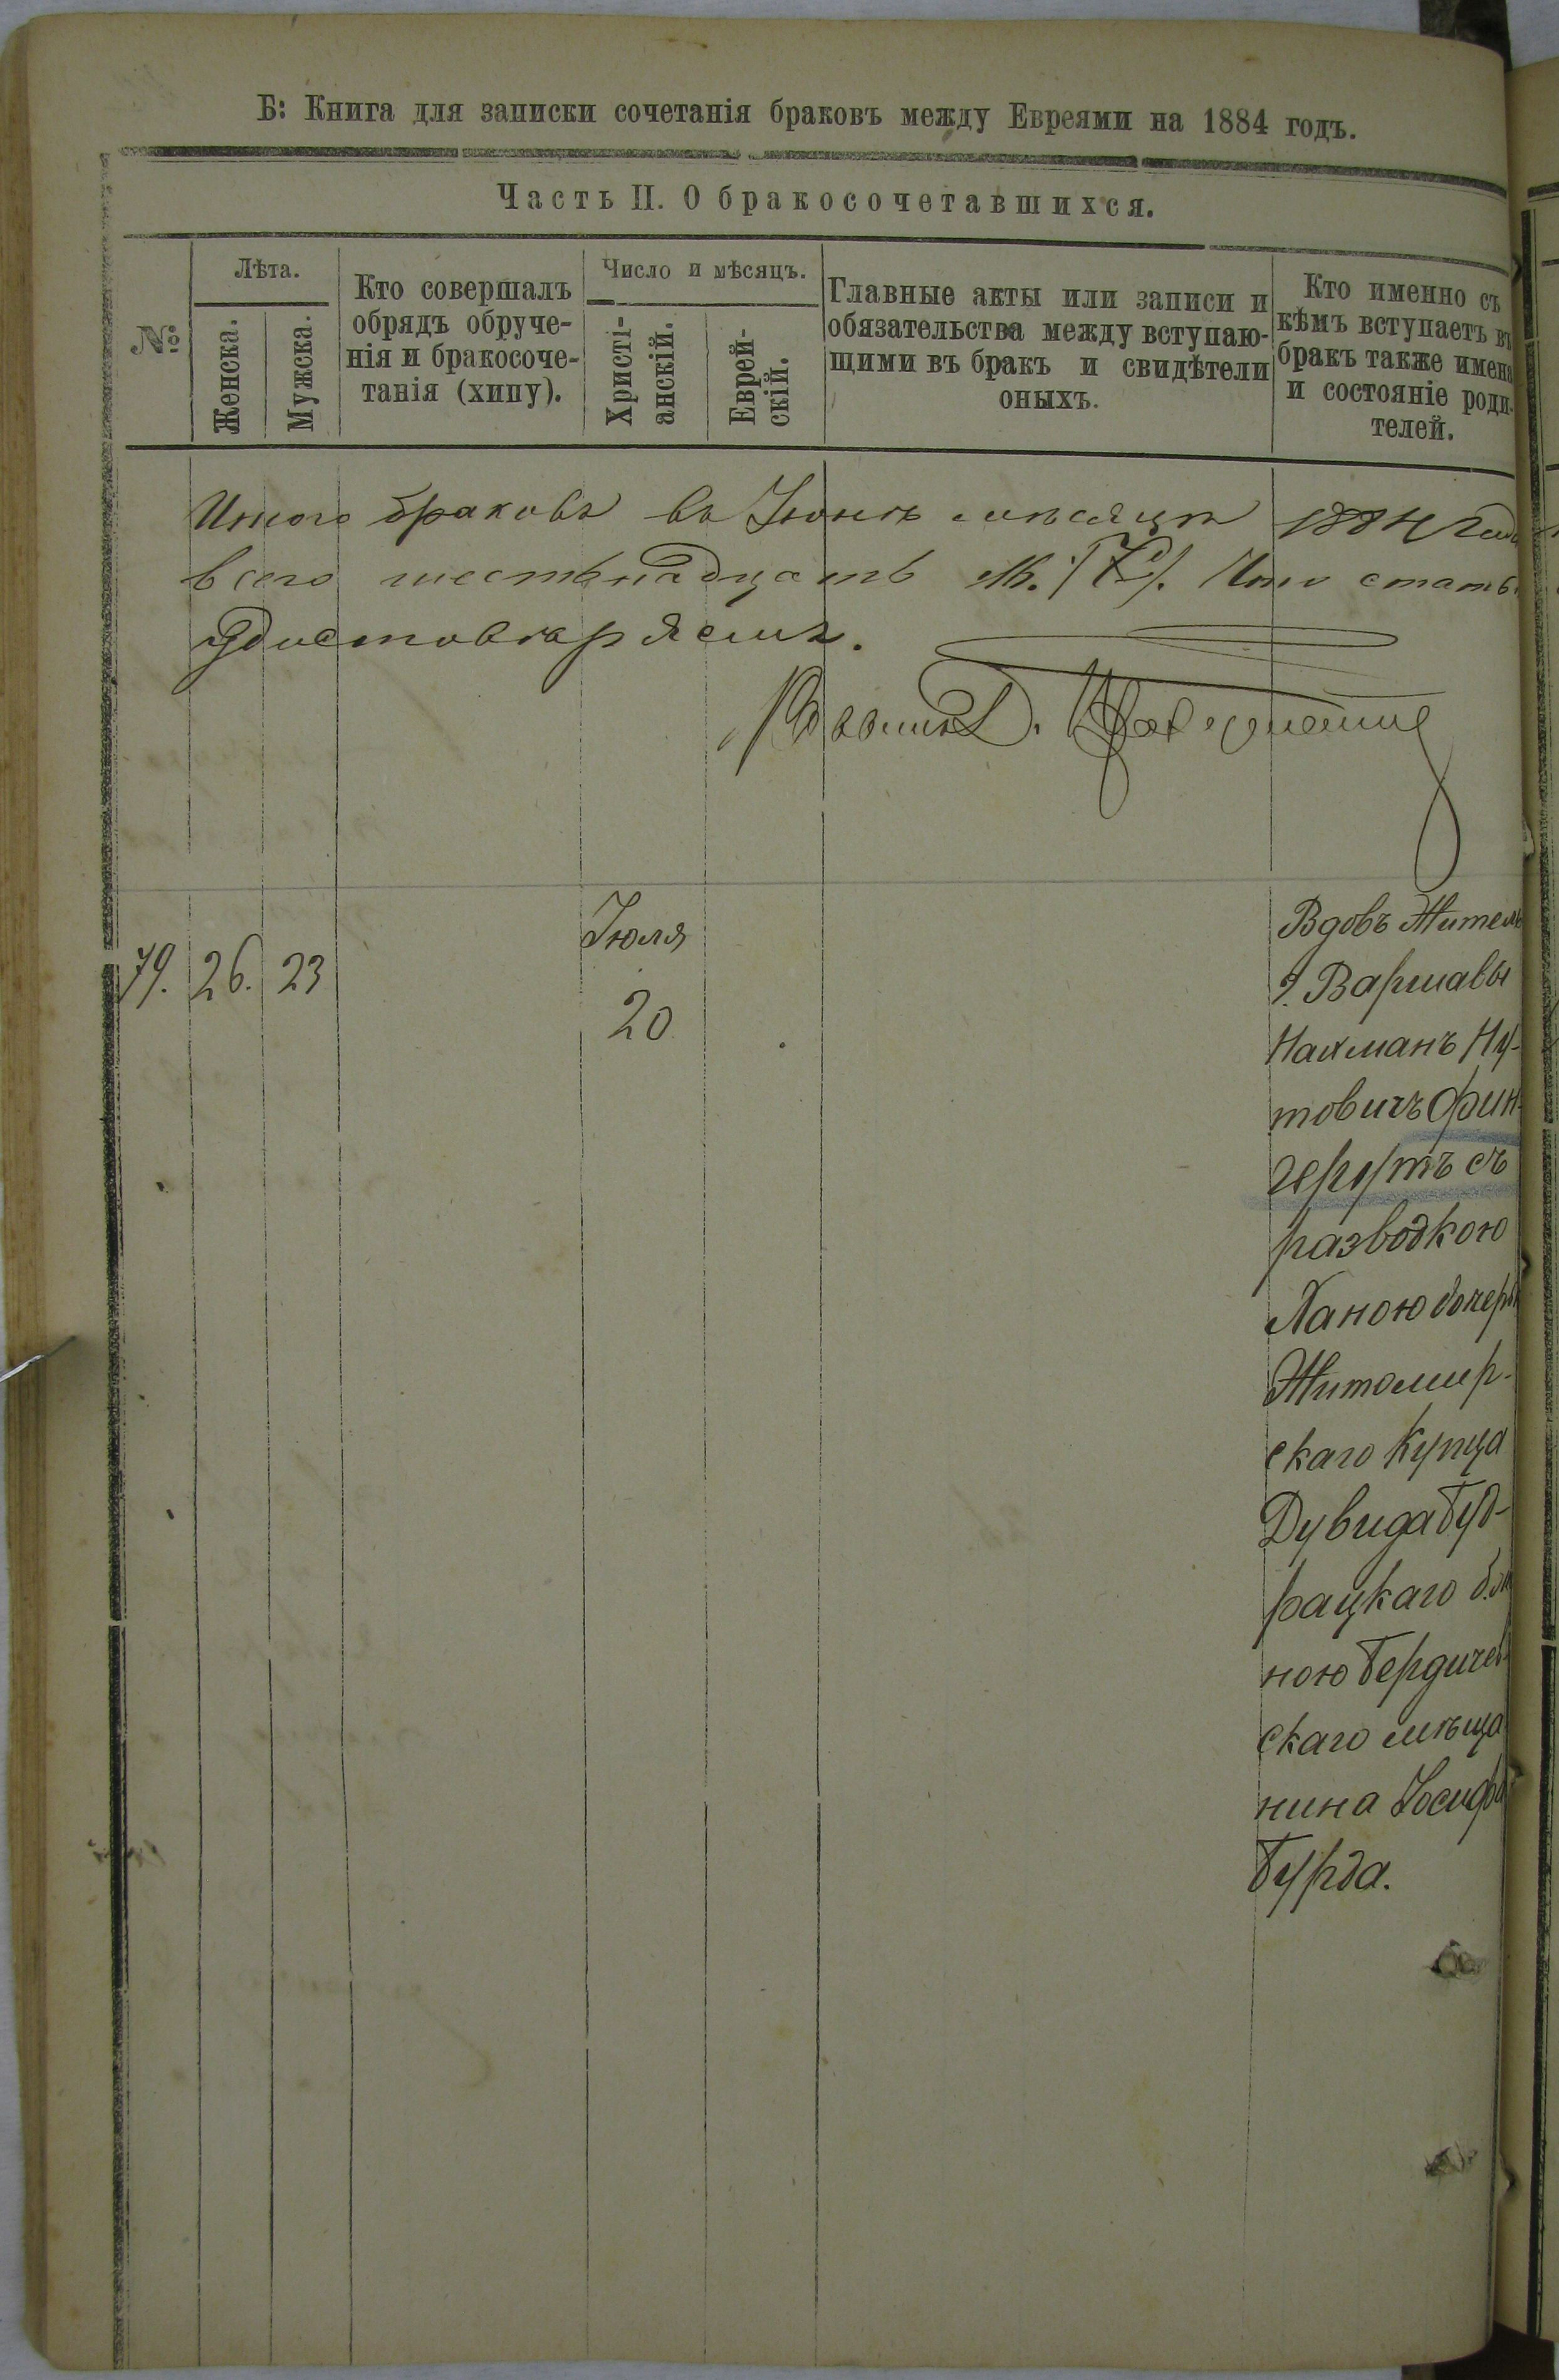 Б: Книга для записки сочетанія браковъ между Евреями на 1884 годъ.
Часть II. О бракосочетавшихся.
№
Лѣта.
Женска.
Мужска.
Кто совершалъ
обрядъ обруче-
нія и бракосоче-
танія (хипу).
Число и мѣсяцъ.
Христі-
анскій.
Еврей-
скій.
Главные акты или записи и
обязательства между вступаю-
щими въ бракъ и свидѣтели
оныхъ.
Кто именно съ
кѣмъ вступаетъ въ
бракъ также имена
и состояніе роди-
телей.
Итого браковъ въ Іюнѣ мѣсяцѣ 1884 года
всего шестьнадцать Что
удостовѣряемъ.
Раввинъ
79. 26. 23
Іюля
20
Вдовъ Житель
г. Варшавы
Нахманъ Ну-
товичъ Фин-
герутъ съ
разводкою
Ханою дочерью
Житомир-
скаго Купца
Дувида Буд-
рацкаго
ною Бердичев-
скаго мѣща
нина Іосифа
Бурда.